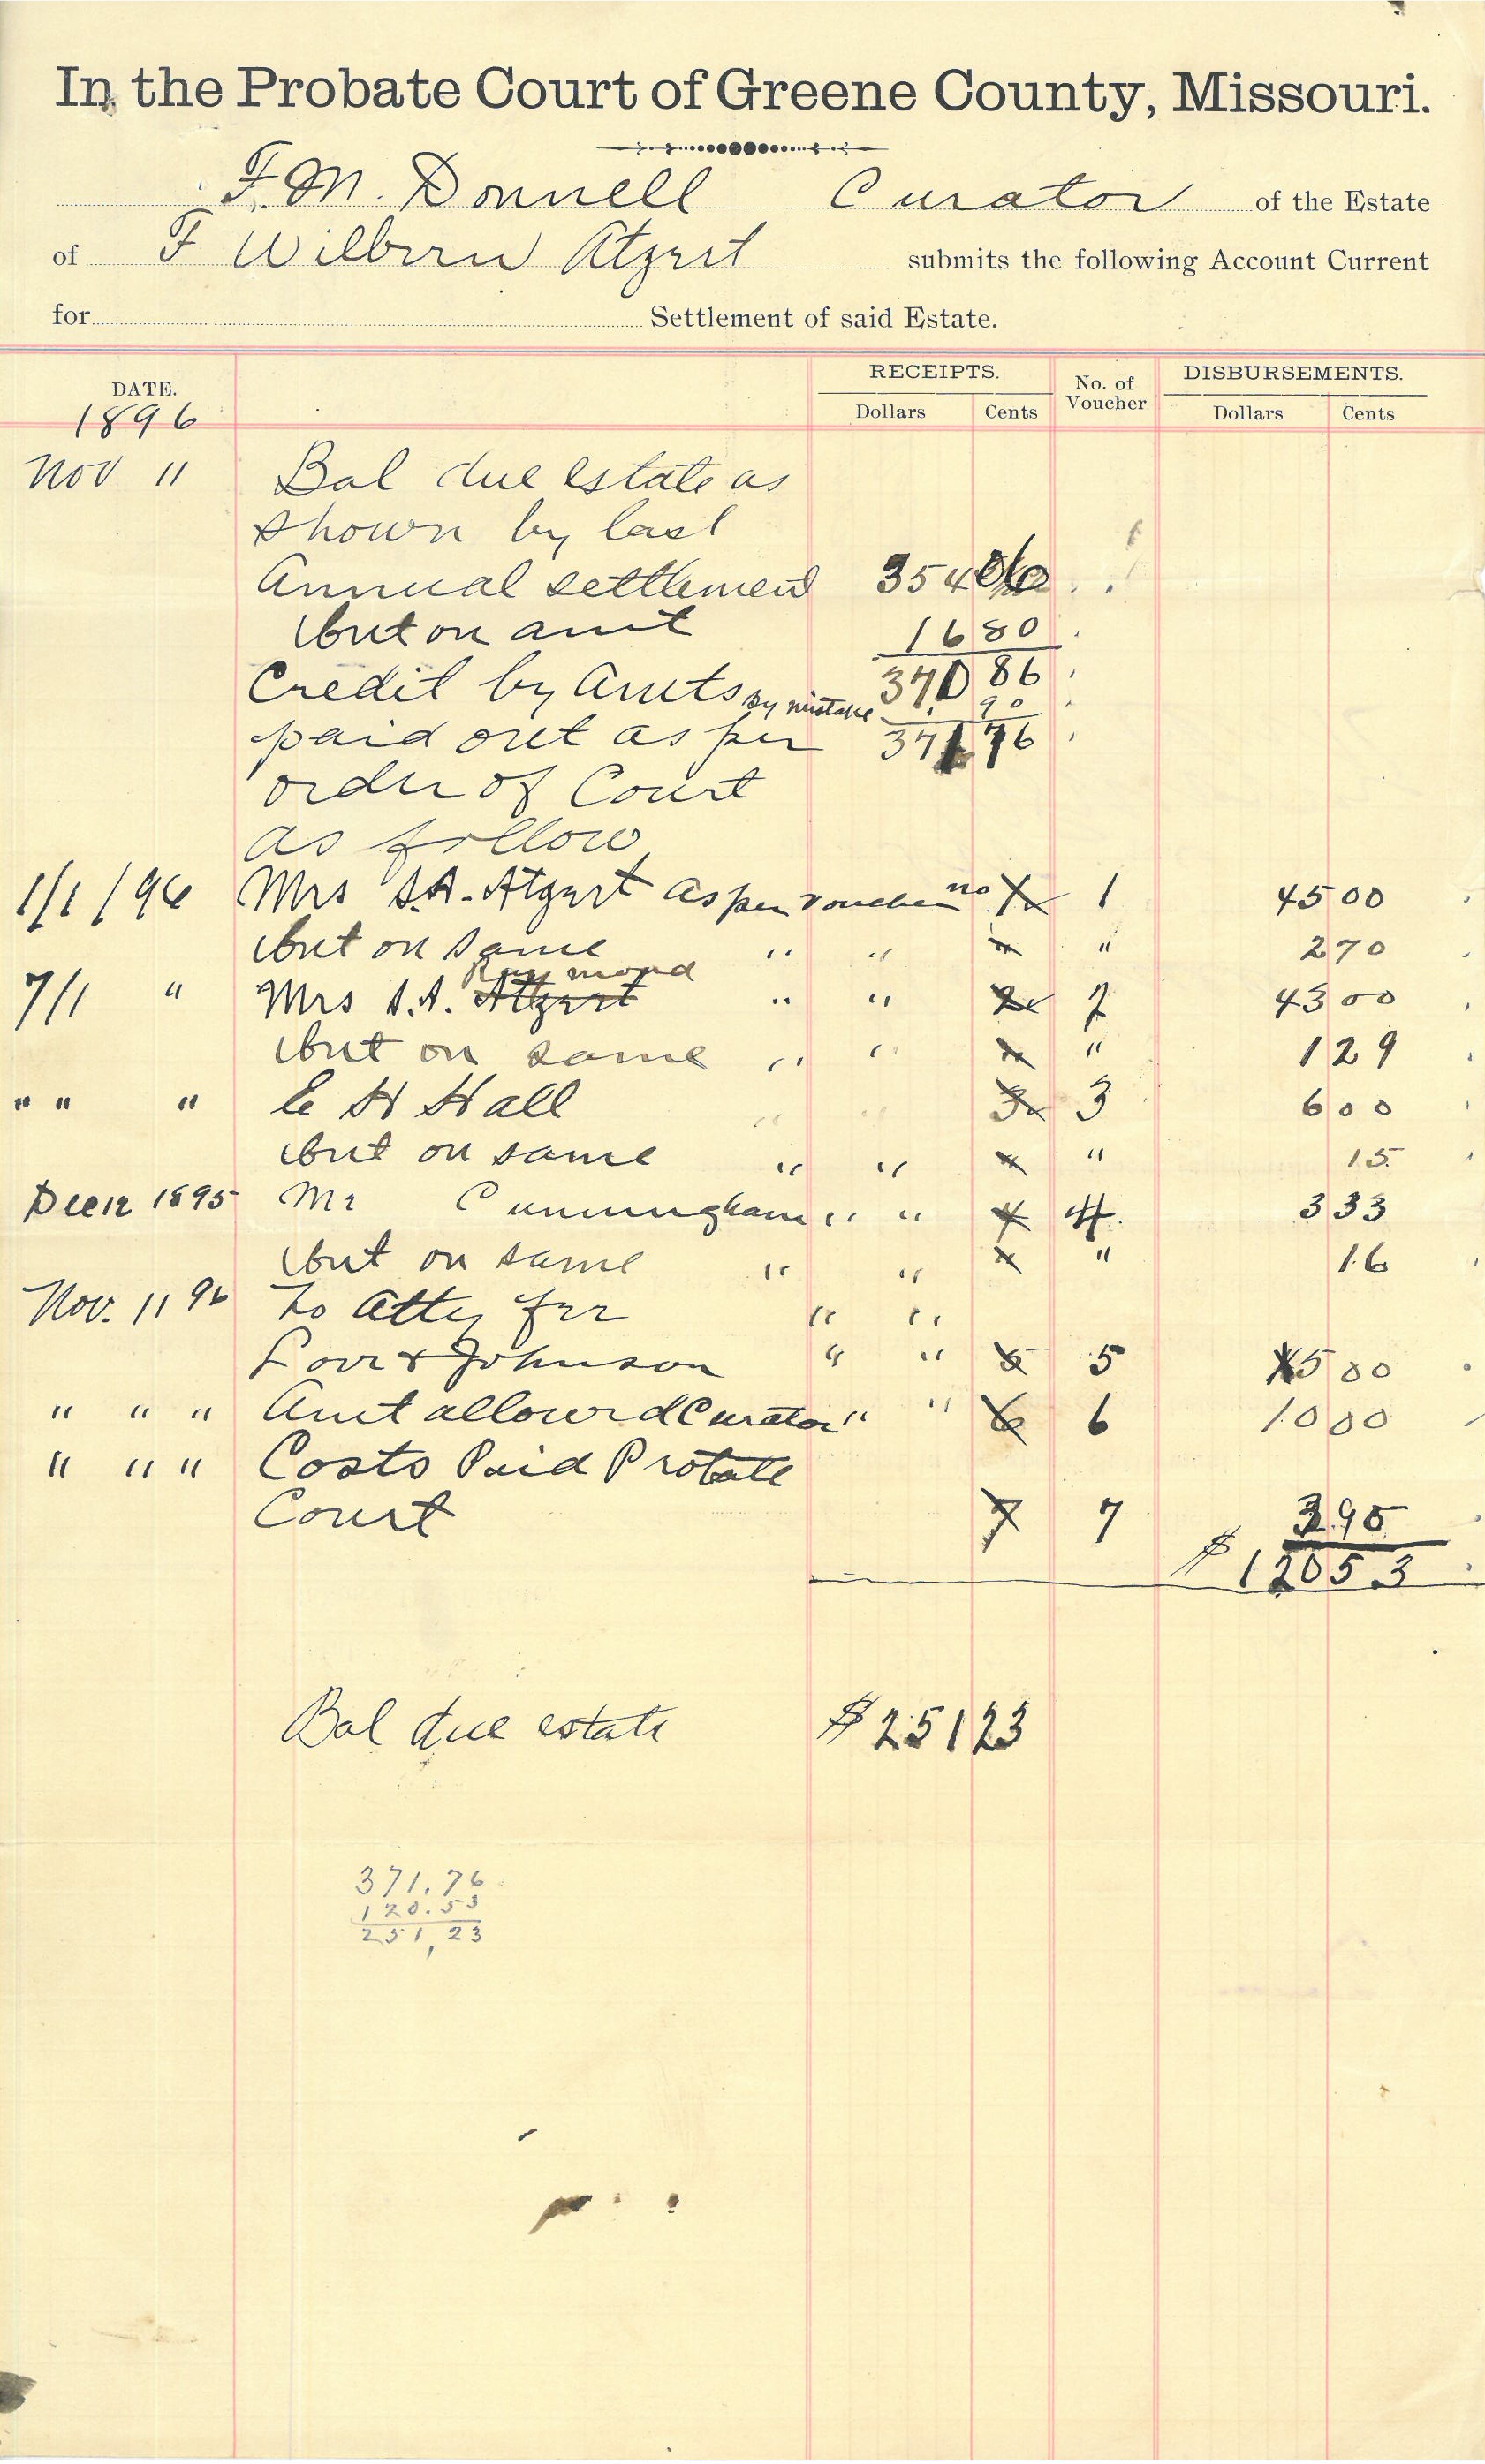 In the Probate Court of Greene County, Missouri.
F. M. Donnell Curator of the Estate
of F Wilburn Atzert submits the following Account Current
for Settlement of said Estate.
DATE. RECEIPTS. No. of Voucher DISBURSEMENTS.
Dollars Cents Dollars Cents
1896
Nov 11 Bal due estate as
shown by last
Annual settlement 354 06
Int on amt 16 80
370 86
Credit by Amts by mistake 90
paid out as per 371 76
order of Court
as follow
1/1/96 Mrs S.A. Atzert as per voucher no 1 1 45 00
Int on same " " " " 2 70
Raymond
7/1 " Mrs S.A. Atzert " " 2 2 43 00
Int on same " " " " 1 29
" " " E H Hall " " 3 3 6 00
Int on same " " " " 15
Dec 12 1895 Mr Cunningham " " 4 4 3 33
Int on same " " " " 16
Nov. 11 96 To Atty fee " "
Love & Johnson " " 5 5 5 00
" " " Amt allowed Curator " " 6 6 10 00
" " " Costs Paid Probate
Court 7 7 3 90
$ 120 53
Bal due estate $ 251 23
371.76
120.53
251,23